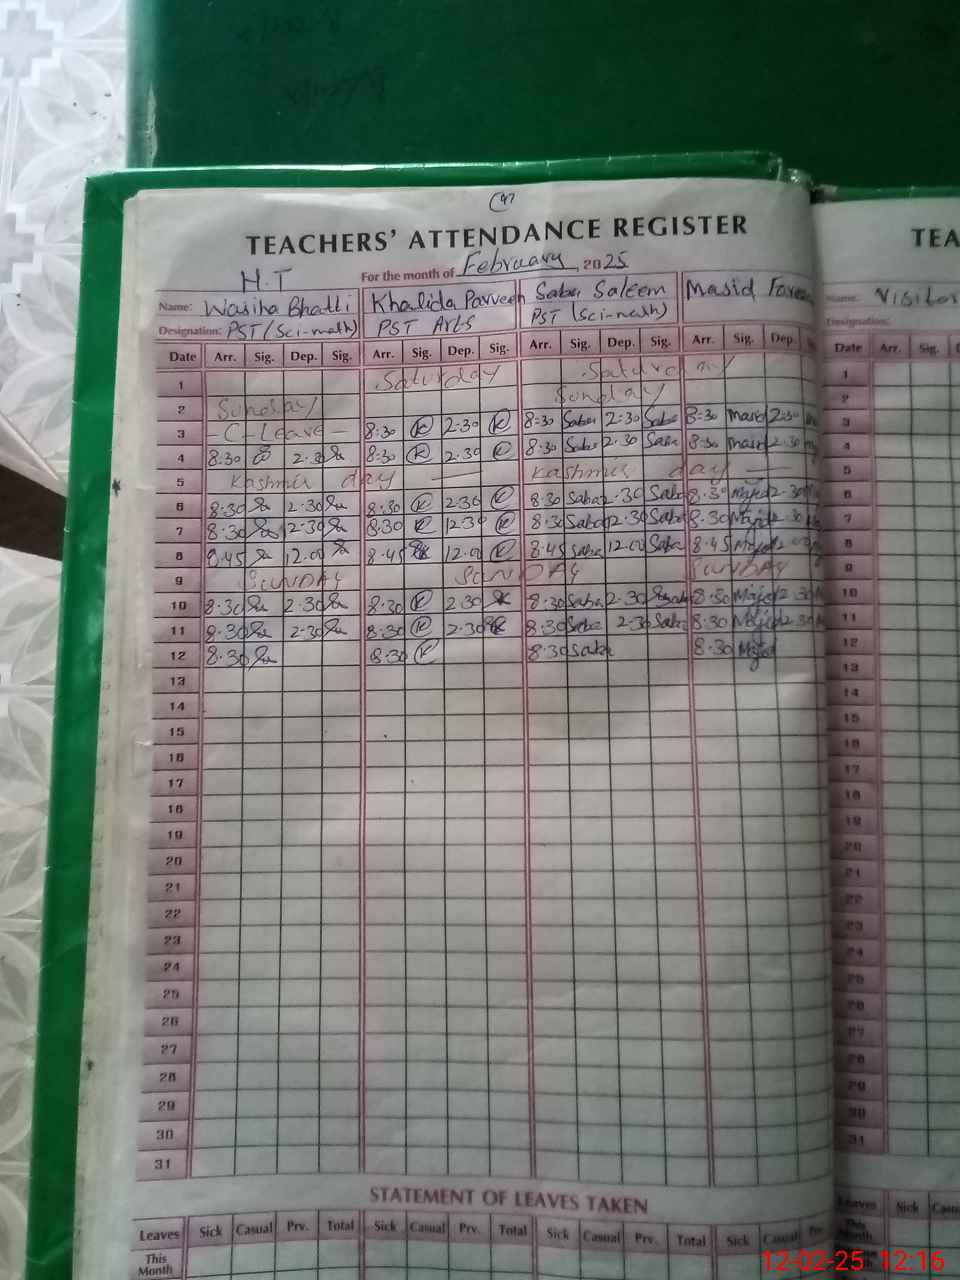 TEACHERS' ATTENDANCE REGISTER
TEA
H.T
For the month of February, 2025
Name: Wasiha Bhatti Khalida Parveen Saba Saleem Masid
Name: Visitor
Designation: PST (Sci-math) PST Arts PST (Sci-math)
Designation:
Date Arr. Sig. Dep. Sig. Arr. Sig. Dep. Sig. Arr. Sig. Dep. Sig. Arr. Sig. Dep.
Date Arr. Sig.
1 Saturday Saturday
2 Sunday Sunday
3 - C - Leave - 8:30 K 2-30 K 8-30 Saba 2-30 Saba 8-30 Masid 2-30
4 8:30 2.30 8:30 K 2.30 K 8.30 Saba 2.30 Saba 8.30 Masid 2.30
5 Kashmir day — Kashmir day —
6 8:30 2.30 8.30 K 2.30 K 8.30 Saba 2.30 Saba 8.30 Majid 2.30
7 8:30 2:30 8:30 K 2.30 K 8.30 Saba 2.30 Saba 8.30 Majid 2.30
8 8.45 12.00 8.45 12.00 K 8.45 Saba 12.00 Saba 8.45 Majid
9 SUNDAY SUNDAY SUNDAY
10 8.30 2.30 8.30 K 2.30 8.30 Saba 2.30 Saba 8.30 Majid 2.30
11 8.30 2.30 8.30 K 2.30 8.30 Saba 2.30 Saba 8.30 Majid 2.30
12 8.30 8.30 K 8.30 Saba 8.30 Majid
13
14
15
16
17
18
19
20
21
22
23
24
25
26
27
28
29
30
31
1
2
3
4
5
6
7
8
9
10
11
12
13
14
15
16
17
18
19
20
21
22
23
24
25
26
27
28
29
30
31
STATEMENT OF LEAVES TAKEN
Leaves Sick Casual Prv. Total Sick Casual Prv. Total Sick Casual Prv. Total Sick Casual Prv.
Leaves Sick
This Month
This Month
12-02-25 12:16